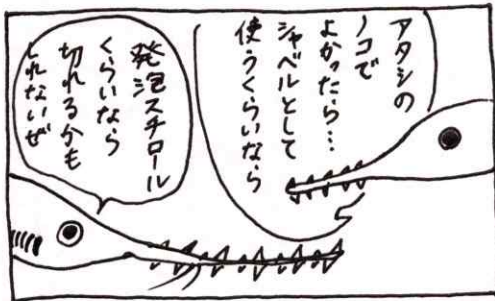 アタシの
ノコで
よかったら…
シャベルとして
使うくらいなら
発泡スチロール
くらいなら
切れるかも
しれないぜ